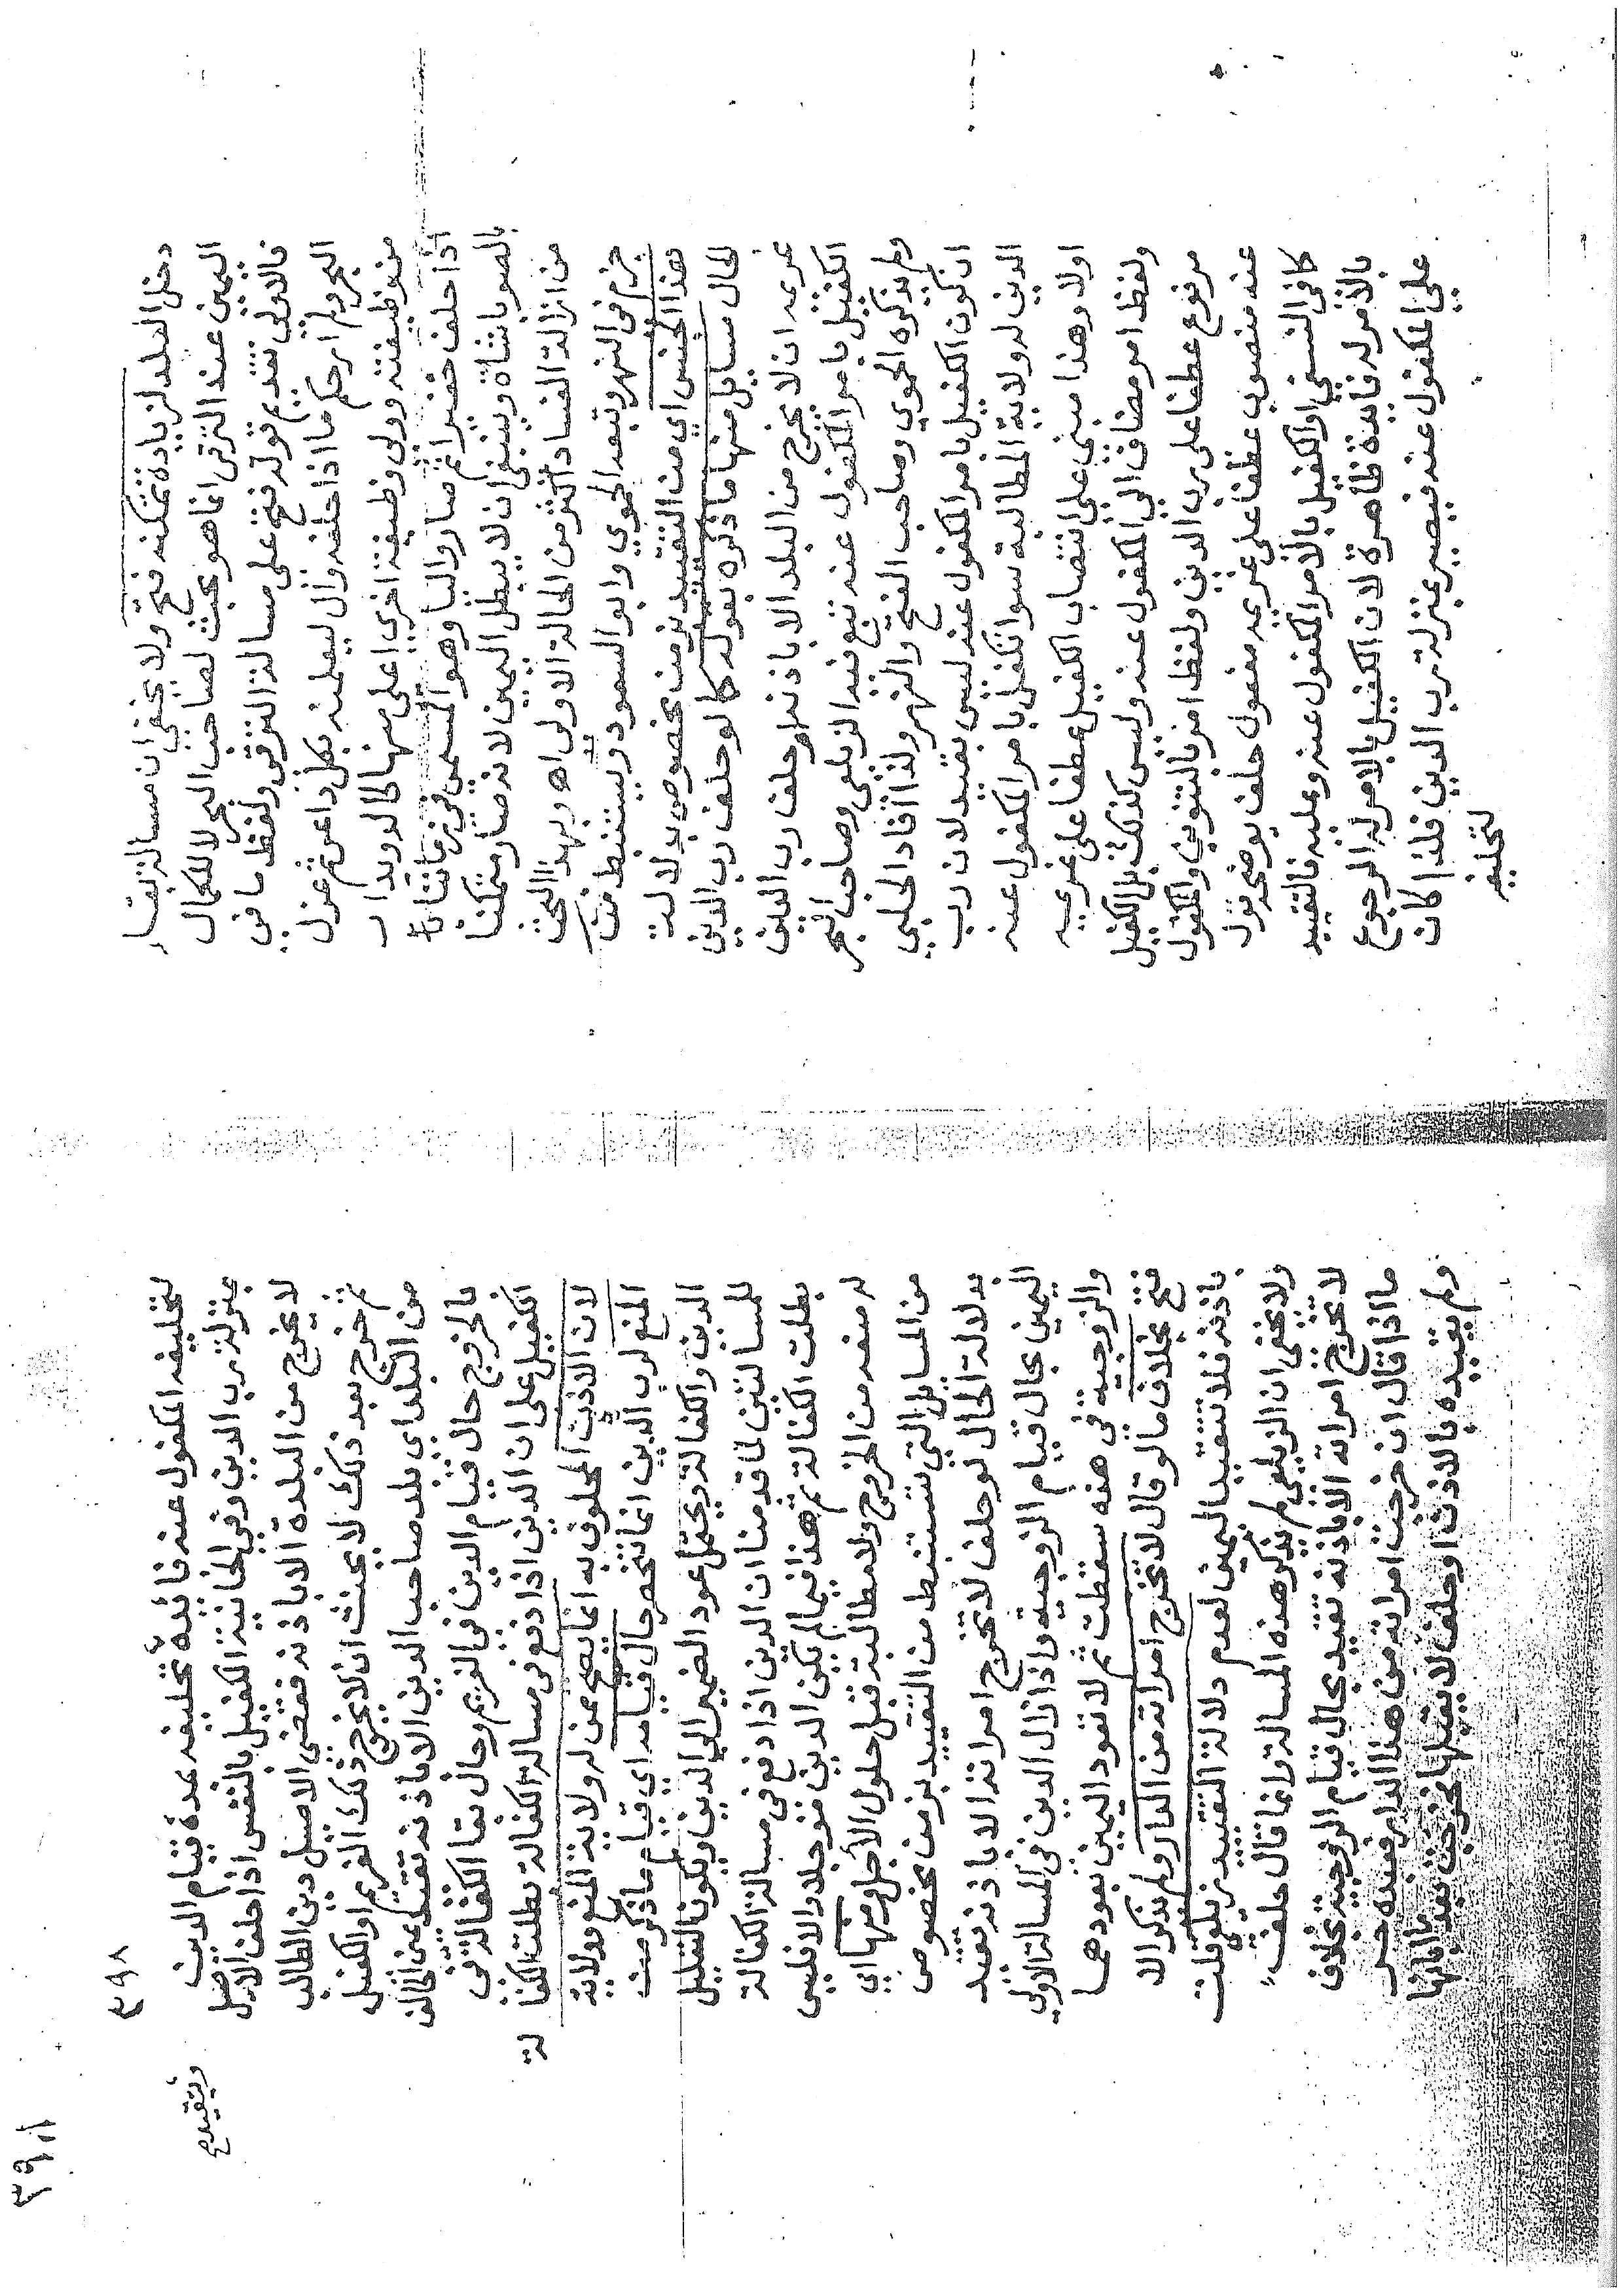 دخل البلد لزيادة تمكنه فتح ولا يخفى ان مسالة بقاء
اليمين عند الترقي انما هو بحث لصاحب البحر لا للكمال
فالاولى تقديم قوله فتح على مسالة الترقي ولفظ ما في
البحر ولم ار حكم ما اذا حلفه وال ليعلمنه بكل داعر ثم عزل
من وظيفته وولى وظيفة اخرى اعلى منها كالدويدار
اذا حلف خفيرا ثم صار واليا وهو المسمى في زماننا
بالصوباشاه وينبغي ان لا يبطل اليمين لانه صار متمكنا
من ازالة الفساد اكثر من الحالة الاولى اه وبهذا البحث
جزم في النهر وتبعه الحموي وابو السعود ويستنبط من
هذا الجنس اي من التقييد بزمن بخصوص بدلالة
الحال مسايل منها ما ذكره بقوله كما لو حلف رب الدين
غريمه ان لا يخرج من البلد الا باذنه او حلف رب الدين
الكفيل بامر المكفول عنه تبع فيه الزيلعي وصاحب البحر
ولم يذكره الحموي وصاحب الفتح والنهر ولذا افاد الحلبي
ان كون الكفيل بامر المكفول عنه ليس بقيد لان رب
الدين له ولاية المطالبة سوا تكفل بامر المكفول عنه
اولا وهذا مبني على انتصاب الكفيل عطفا على غريمه
ولفظ امر مضاف الى المكفول عنه وليس كذلك بل الكفيل
مرفوع عطفا على رب الدين ولفظ امر بالتنوين والمكفول
عنه منصوب عطفا على غريمه مفعول حلف يوضحه قول
كافي النسفي او الكفيل بالامر المكفول عنه وعليه فالتقييد
بالامر له فايدة ظاهرة لان الكفيل بالامر له الرجوع
على المكفول عنه فيصير بمنزلة رب الدين فلذا كان
لتحليفه
٣٩٨
٣٩٨
لتحليفه المكفول عنه فائدة تحليفه بمدة قيام الدين
وتقييده
بمنزلة رب الدين وفي الخانية الكفيل بالنفس اذا حلف الاصيل
لا يخرج من البلدة الا باذنه فقضى الاصيل دين الطالب
ثم خرج بعد ذلك لا يحنث ان لا يخرج ذلك الغريم او الكفيل
من البلد اي بلد صاحب الدين الا باذنه تقييد عن الحالف
بالخروج حال قيام الدين في الغريم وحال بقا الكفالة في
الكفيل على ان الدين اذا دفع في مسالة الكفالة بطلت الكفا
لة
لان الاذن المحلوف به انما يصح ممن له ولاية المنع وولاية
المنع لرب الدين انما تنحصر حال قيامه اي قيام ما ذكر من
الدين والكفالة ويحتمل عود الضمير الى الدين ويكون التعليل
للمسالتين لما قدمنا ان الدين اذا دفع في مسالة الكفالة
بطلت الكفالة ثم هذا فيما لم يكن الدين موجلا والا فليس
له منعه من الخروج ولا مطالبته قبل حلول الاجل ومنها اي
من المسايل التي تستنبط من التقييد بزمن بخصوص
بدلالة الحال لو حلف لا تخرج امراته الا باذنه تقيد
اليمين بحال قيام الزوجية واذا زال الدين في المسالة الاولى
والزوجية في هذه سقطت ثم لا تعود اليمين بعودهما
فتح بخلاف ما لو قال لا تخرج امراته من الدار ولم يذكر الا
باذنه فلا تتقيد اليمين لعدم دلالة التقييد زيلعي قلت
ولا يخفى ان الزيلعي لم يذكر هذه المسالة وانما قال حلف
لا تخرج امراته الا باذنه تقيد بحال قيام الزوجية بخلاف
ما اذا قال ان خرجت امراته من هذا الدار فعبده حر
ولم يقيده بالاذن او حلف لا يقبلها فخرجت بعد ما ابانها